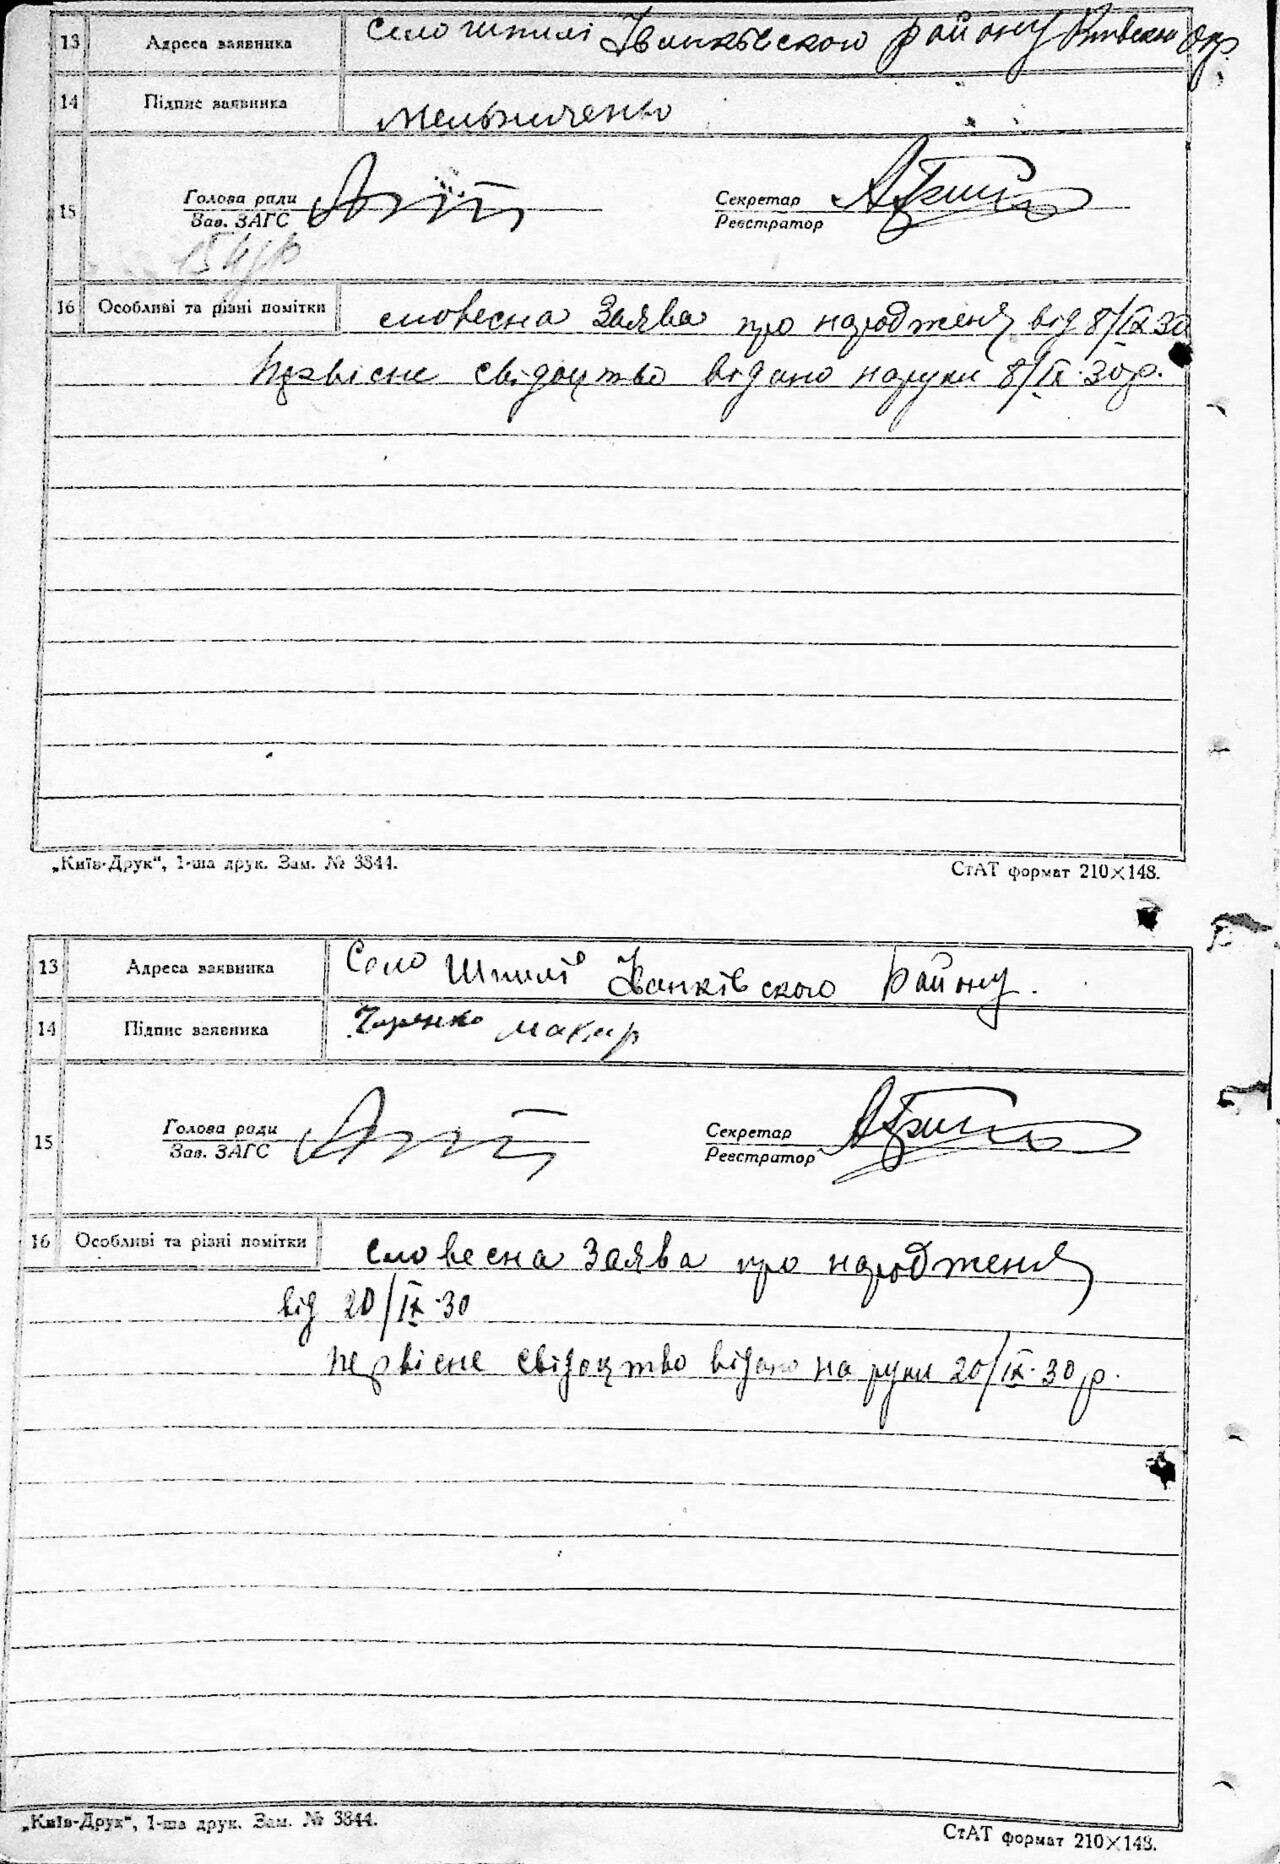 13 Адреса заявника Село Шпилі Іванківского району Київскої окр.
14 Підпис заявника Мельниченко
15 Голова ради Секретар
Зав. ЗАГС Реєстратор
16 Особливі та різні помітки словесна заява про народженя від 8/IX 30
Первісне свідоцтво видано на руки 8/IX-30 р.
„Київ-Друк“, 1-ша друк. Зам. № 3844. СтАТ формат 210×148.
13 Адреса заявника Село Шпилі Іванківского Району.
14 Підпис заявника Макар
15 Голова ради Секретар
Зав. ЗАГС Реєстратор
16 Особливі та різні помітки словесна заява про народженя
від 20/IX-30
Первісне свідоцтво видано на руки 20/IX-30 р.
„Київ-Друк“, 1-ша друк. Зам. № 3844. СтАТ формат 210×148.